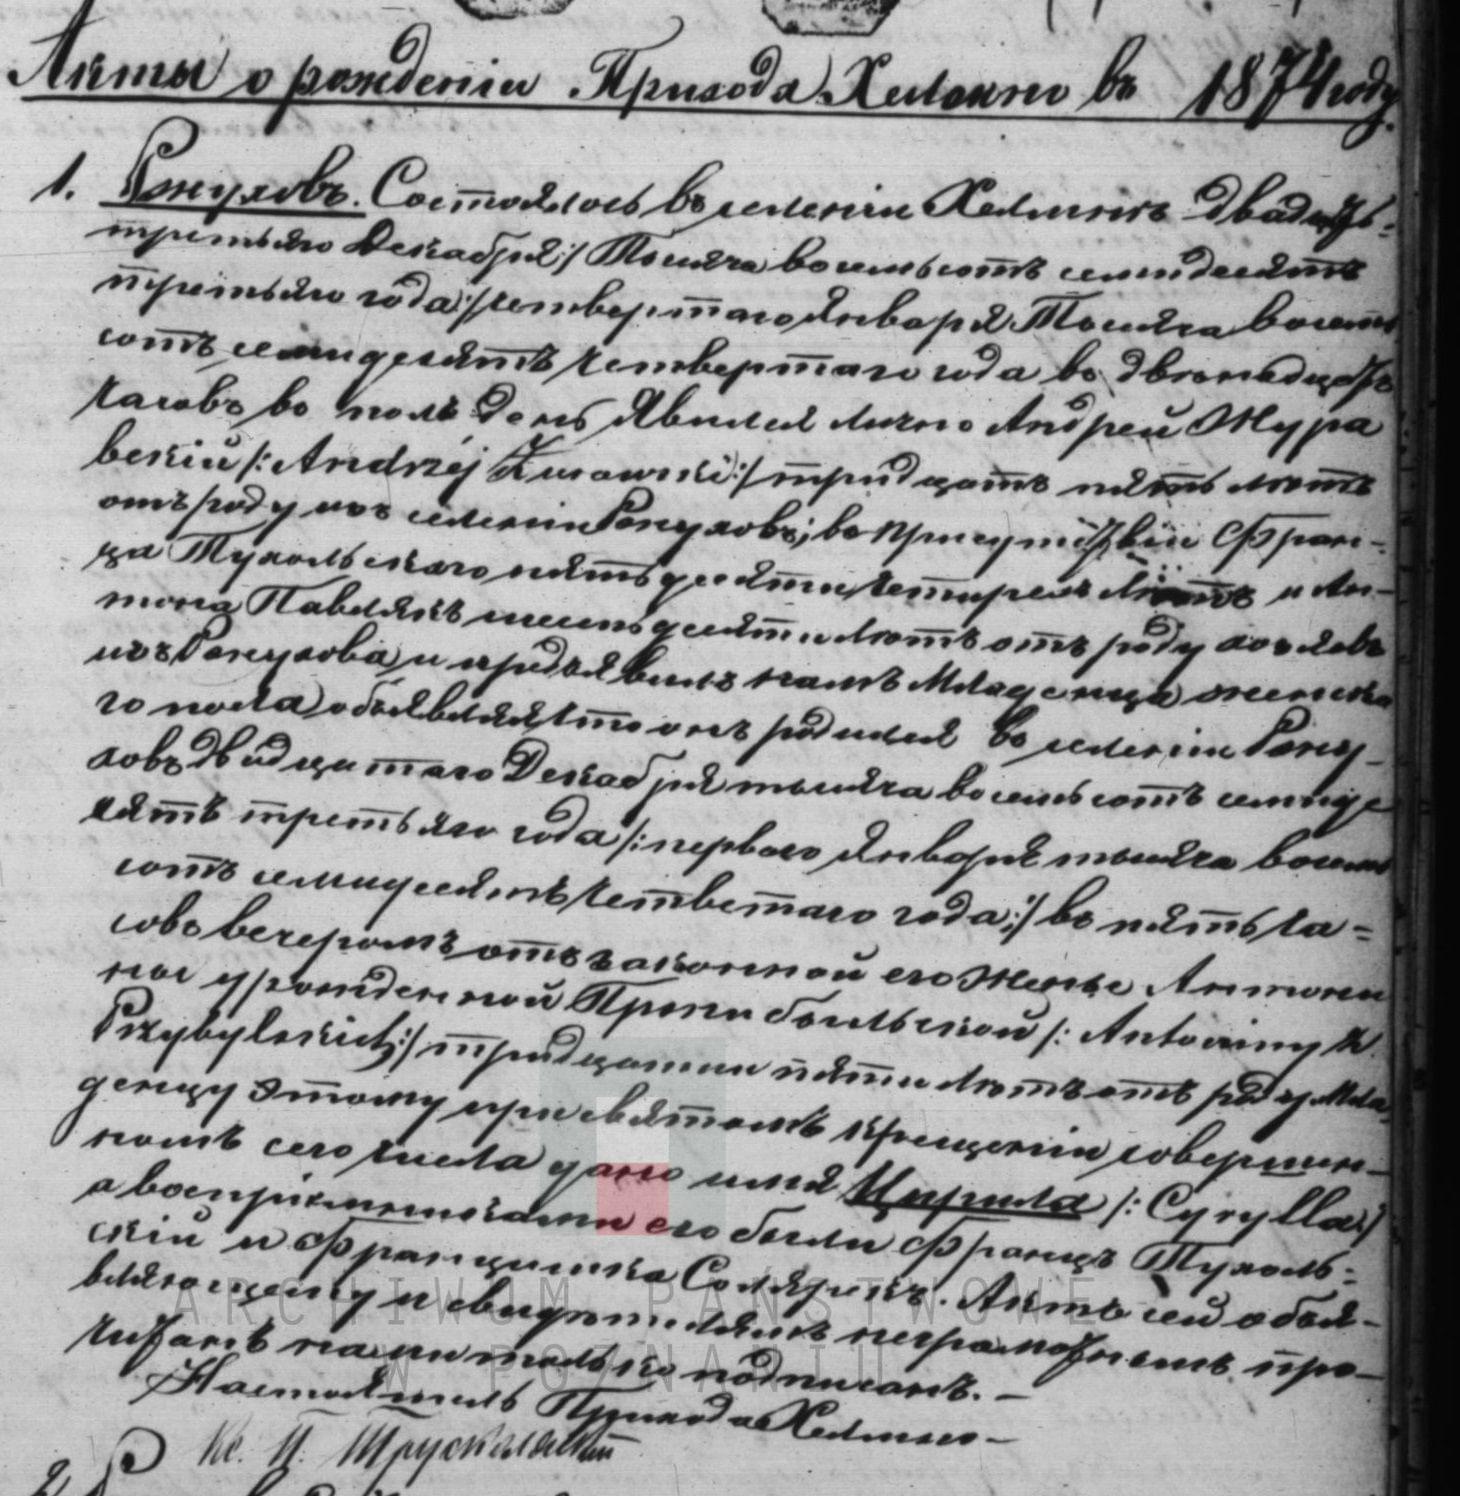 Акты о рожденіи Прихода Хелмно въ 1874 году.
1. Ржуховъ. Состоялось въ селеніи Хелмнѣ двадцать
третьяго Декабря /: Тысяча восемьсотъ семьдесятъ
третьяго года :/ четвертаго Января Тысяча восемь
сотъ семидесятъ четвертаго года въ двѣнадцать
часовъ по полъ день явился лично Андрей Жура
вскій /: Andrzéj Żurawski :/ тридцать пять лѣтъ
отъ роду изъ селенія Ржуховъ; въ присутствіи Фран-
ца Тухольскаго пятьдесяти четырехъ лѣтъ и Ан-
тона Павлякъ шестьдесяти лѣтъ отъ роду хозяевъ
изъ Ржухова и предъявилъ намъ Младенца женска
го пола объявляя что онъ родился въ селеніи Ржу-
ховъ двадцатаго Декабря тысяча восемьсотъ семиде
сятъ третьяго года /: перваго Января тысяча восемь
сотъ семидесятъ четветаго года :/ въ пять ча=
совъ вечеромъ отъ законной его Жены Антони
ны урожденной Пржибыльской /: Antoniny z
Przybylskich :/ тридцати пяти лѣтъ отъ роду. Мла
денцу этому при святомъ крещеніи совершен-
номъ сего числа дано имя Цирилла /: Cyrylla :/
а воспріемниками его были Францъ Тухоль=
скій и Францишка Солярекъ. Актъ сей объя-
вляющему и свидѣтелямъ неграмотнымъ про-
читанъ нами только подписанъ. —
Настоятель Прихода Хелмно —
Кс. П.
ARCHIWUM PAŃSTWOWE
W POZNANIU
2.